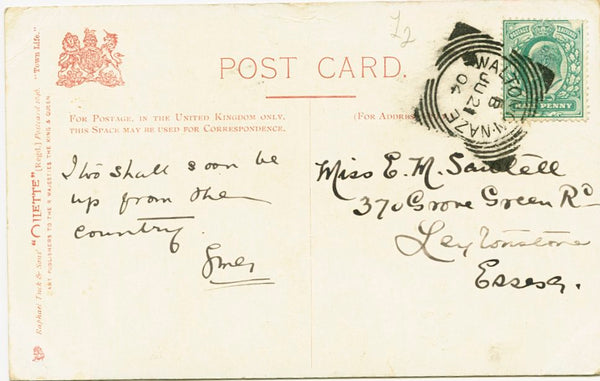 £2
POST CARD.
FOR POSTAGE, IN THE UNITED KINGDOM ONLY,
THIS SPACE MAY BE USED FOR CORRESPONDENCE.
(FOR ADDRESS
I too shall soon be
up from the
country.
Miss E. M. Sawtell
370 Grove Green Rd
Leytonstone
Essex.
WALTON-ON-NAZE
B
JU 21
04
HALF PENNY
Raphael Tuck & Sons' "OILETTE" [Regd.] Postcard
"Town Life."
ART PUBLISHERS TO THEIR MAJESTIES THE KING & QUEEN